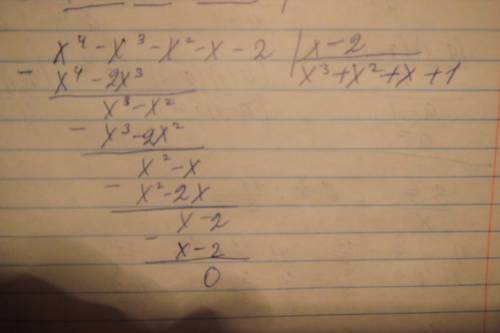 x⁴ - x³ - x² - x - 2 | x - 2
- x⁴ - 2x³ x³ + x² + x + 1
x³ - x²
- x³ - 2x²
x² - x
- x² - 2x
x - 2
- x - 2
0